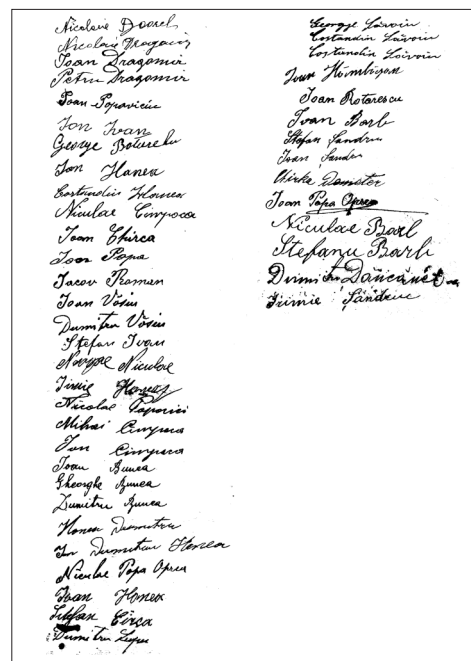 Nicolaie Dosrel
Nicolaie Dragomir
Ioan Dragomir
Petru Dragomir
Ioan Popoviciu
Ion Ivan
George Boturelu
Ion Hanea
Costandin Hanea
Niculae Cimpoca
Ioan Chirca
Ioan Popa
Iacov Roman
Ioan Vosiu
Dumitru Vosiu
Stefan Ivan
Niculae
Irimie Honea
Nicolae Popovici
Mihai Cimpoca
Ion Cimpoca
Ioan Bunea
Gheorghe Bunea
Dumitru Bunea
Honea Dumitru
Ion Dumitru Honea
Niculae Popa Oprea
Ioan Honea
Stefan Circa
Dumitru Lupu
George Săvoiu
Costandin Săvoiu
Costandin Săvoiu
Ioan
Ioan Rotarescu
Ivan Barb
Stefan Sandru
Ioan Sandru
Chirka Dumiter
Ioan Popa Oprea
Niculae Barb
Stefanu Barb
Dumitru Dăncănet
Irimie Șăndriu